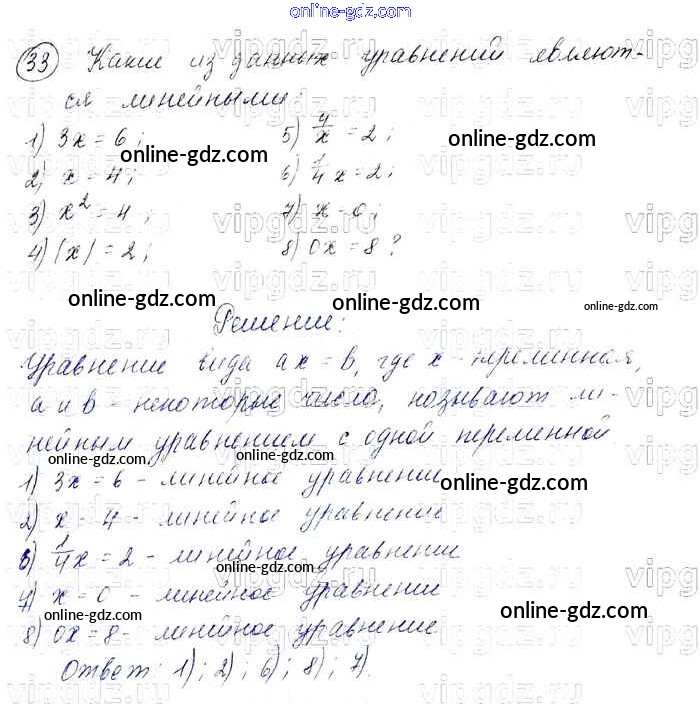 online-gdz.com
33 Какие из данных уравнений являют-
ся линейными:
1) 3x = 6; 5) 4/x = 2;
2) x = 4; 6) 1/4 x = 2;
3) x² = 4; 7) x = 0;
4) |x| = 2; 8) 0x = 8?
online-gdz.com online-gdz.com
online-gdz.com online-gdz.com online-gdz.com
Решение:
Уравнение вида ax = b, где x - переменная,
a и b - некоторые числа, называют ли-
нейным уравнением с одной переменной
online-gdz.com online-gdz.com
1) 3x = 6 - линейное уравнение
online-gdz.com
2) x = 4 - линейное уравнение
6) 1/4 x = 2 - линейное уравнение
online-gdz.com
7) x = 0 - линейное уравнение
online-gdz.com
8) 0x = 8 - линейное уравнение
Ответ: 1); 2); 6); 8); 7).
online-gdz.com